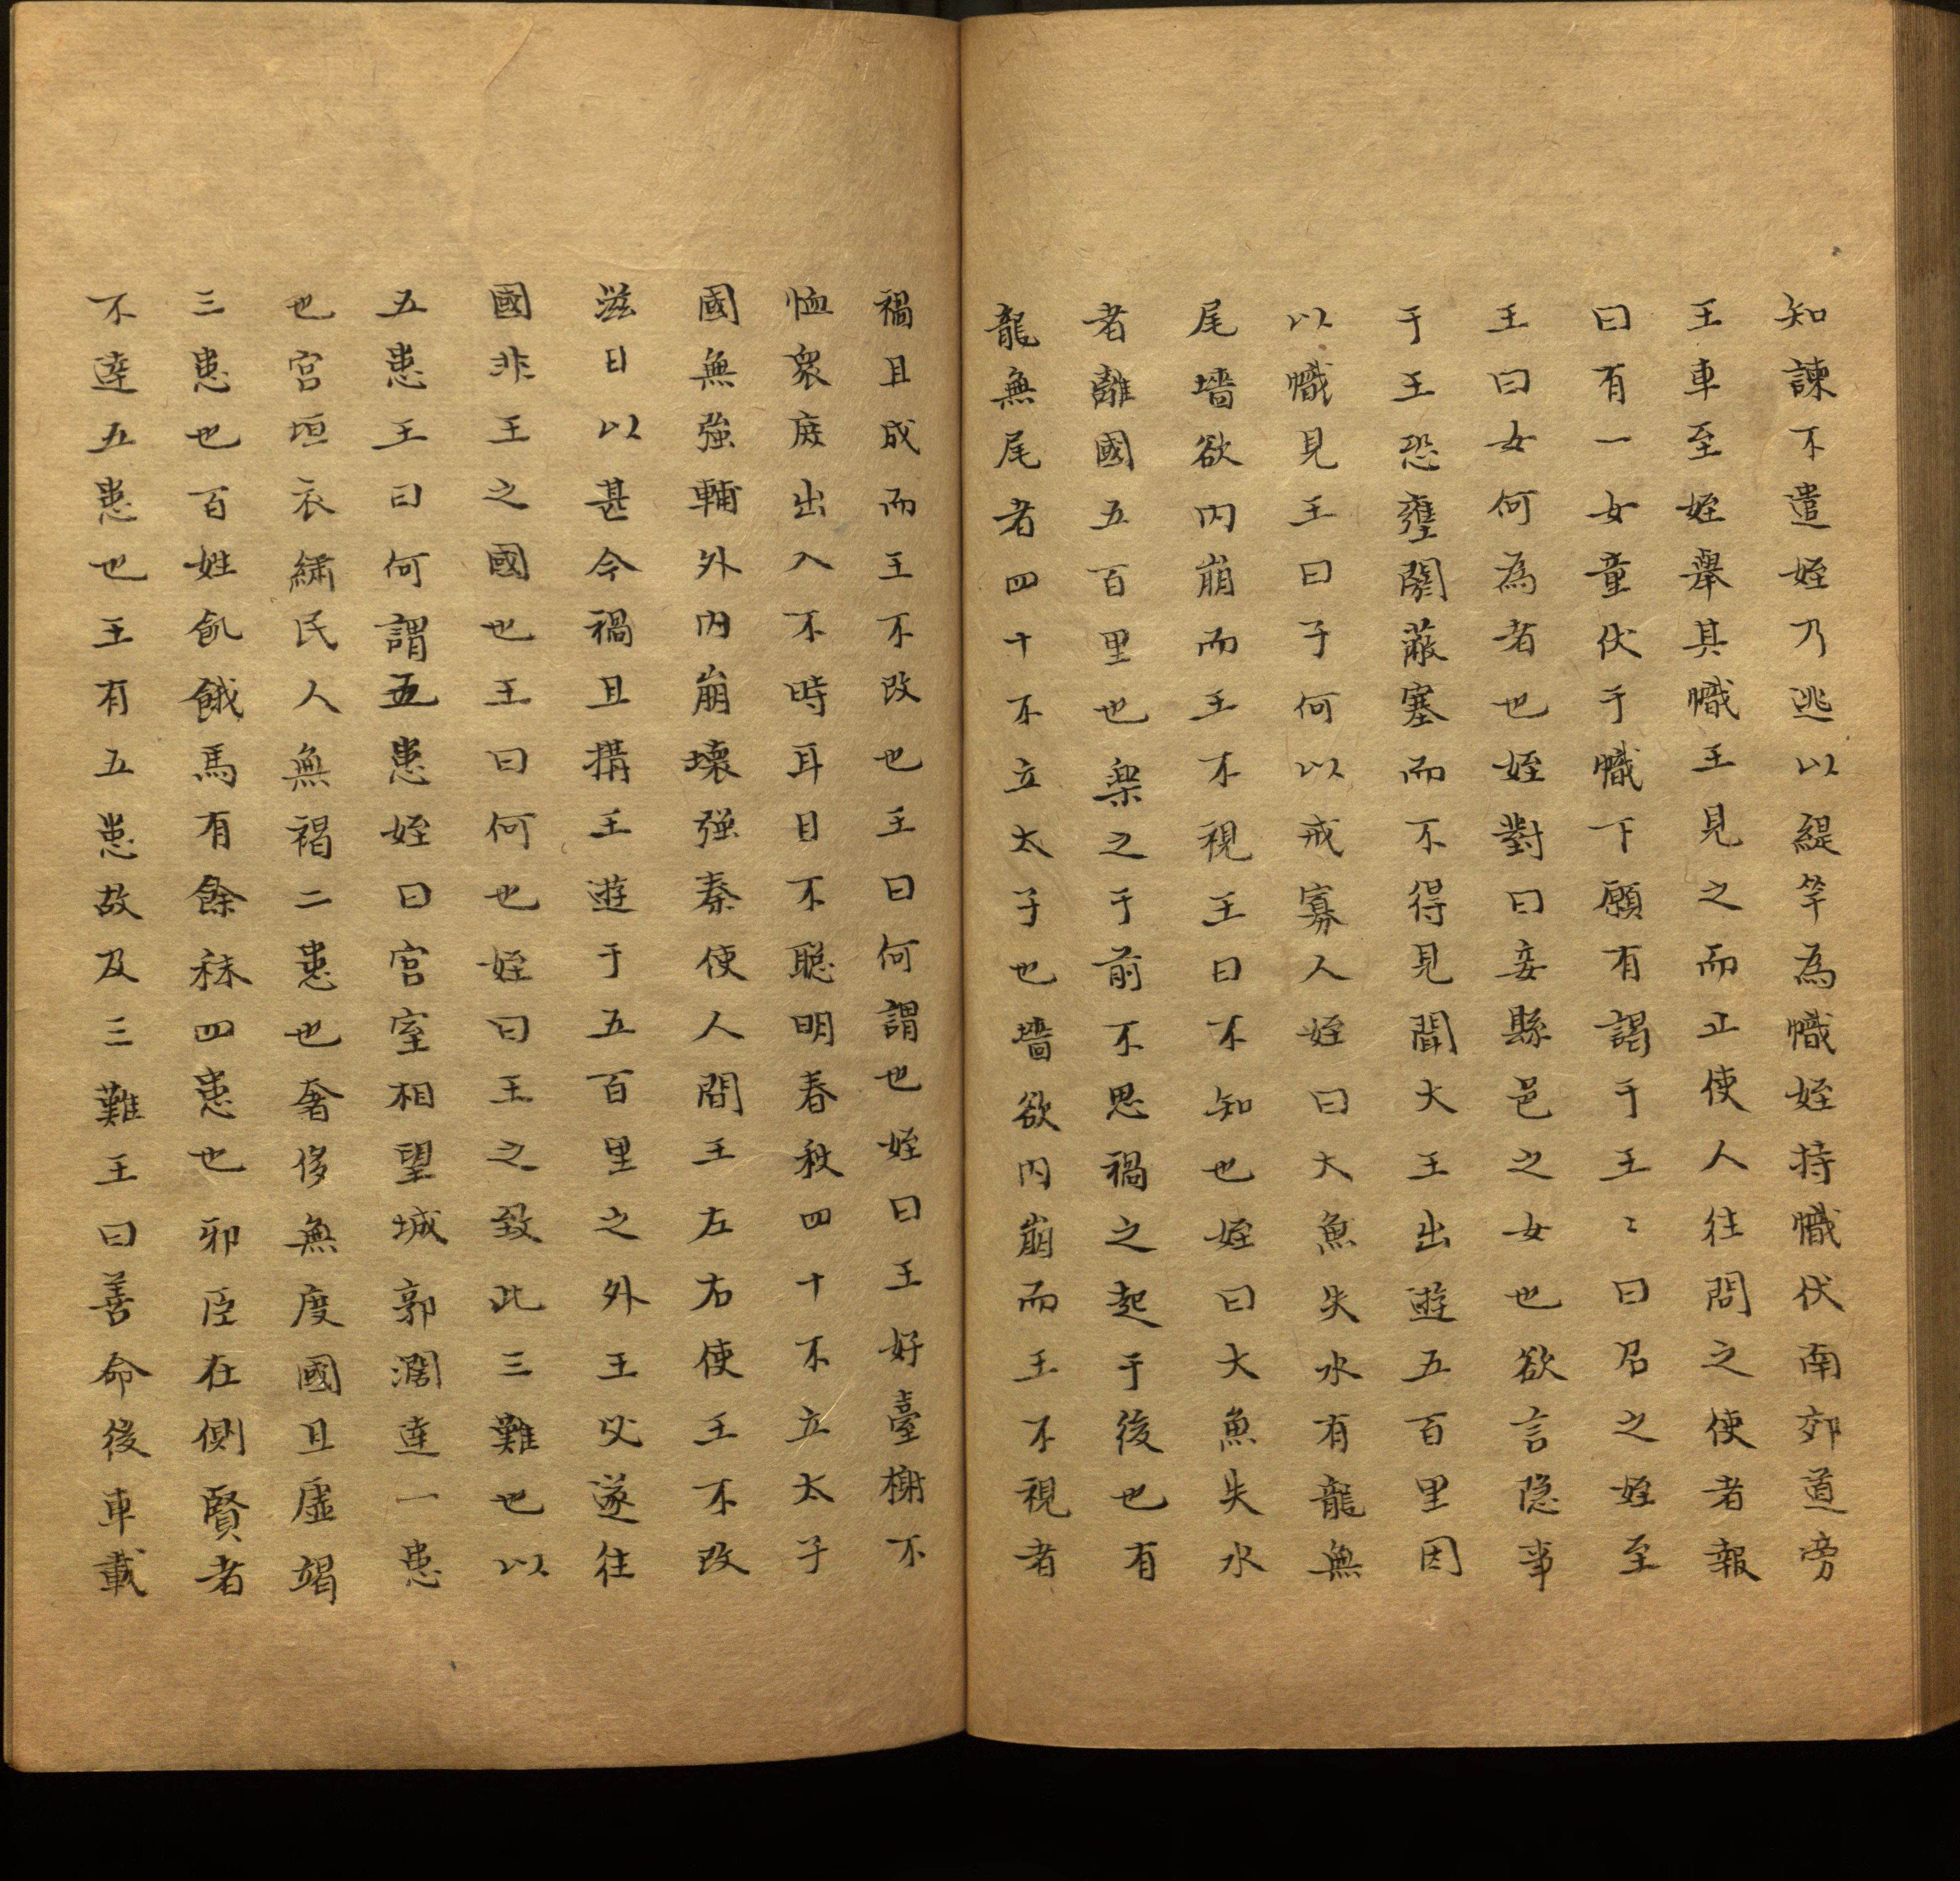 知諫不遣姪乃逃以緹竿為幟姪持幟伏南郊道旁
王車至姪舉其幟王見之而止使人往問之使者報
曰有一女童伏于幟下願有謁于王〻曰召之姪至
王曰女何為者也姪對曰妾縣邑之女也欲言隐事
于王恐壅閼蔽塞而不得見聞大王出遊五百里因
以幟見王曰子何以戒寡人姪曰大魚失水有龍無
尾墻欲内崩而王不視王曰不知也姪曰大魚失水
者離國五百里也樂之于前不思禍之起于後也有
龍無尾者四十不立太子也墻欲内崩而王不視者
禍且成而王不改也王曰何謂也姪曰王好臺榭不
恤衆庶出入不時耳目不聰明春秋四十不立太子
國無強輔外内崩壞强秦使人間王左右使王不改
滋日以甚今禍且搆王遊于五百里之外王必遂往
國非王之國也王曰何也姪曰王之致此三難也以
五患王曰何謂五患姪曰宫室相望城郭濶達一患
也宫垣衣繡民人無褐二患也奢侈無度國且虚竭
三患也百姓飢餓馬有餘秣四患也邪臣在側賢者
不達五患也王有五患故及三難王曰善命後車載